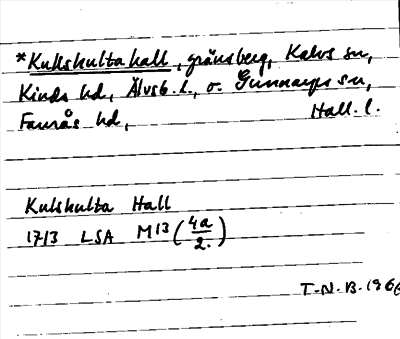 *Kulshulta hall, gränsberg, Kalvs sn,
Kinds hd, Älvsb. l., o. Gunnarps sn,
Faurås hd, Hall. l.
Kulshulta Hall
1713 LSA M13 (4a/2.)
T.N.B. 1966